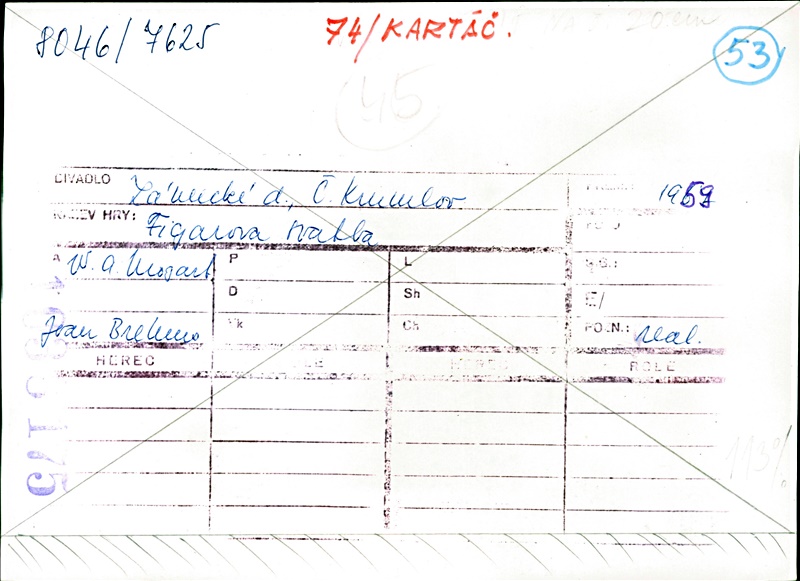 8046/7625
74/KARTÁČ.
20 cm
53
45
DIVADLO Zámecké d., Č. Krumlov 1959
NÁZEV HRY: Figarova svatba
A W. A. Mozart P L
D Sh E/
Joan Brehms Vk Ch POZN.: real.
HEREC ROLE HEREC ROLE
113%